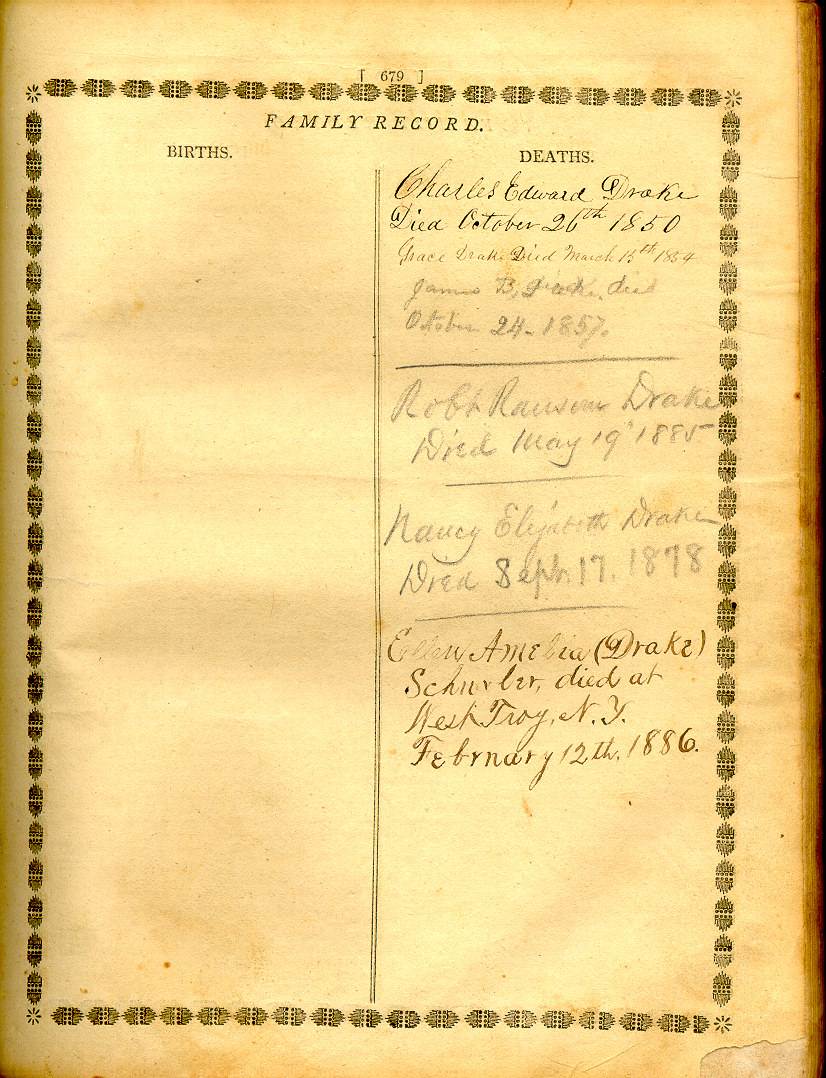 [ 679 ]
FAMILY RECORD.
BIRTHS.
DEATHS.
Charles Edward Drake
Died October 26th 1850
Grace Drake Died March 15th 1854
James B. Drake died
October 24 - 1857.
Robt Ransom Drake
Died May 19" 1885
Nancy Elizabeth Drake
Died Sept. 17. 1878
Ellen Amelia (Drake)
died at
West Troy, N. Y.
February 12th, 1886.